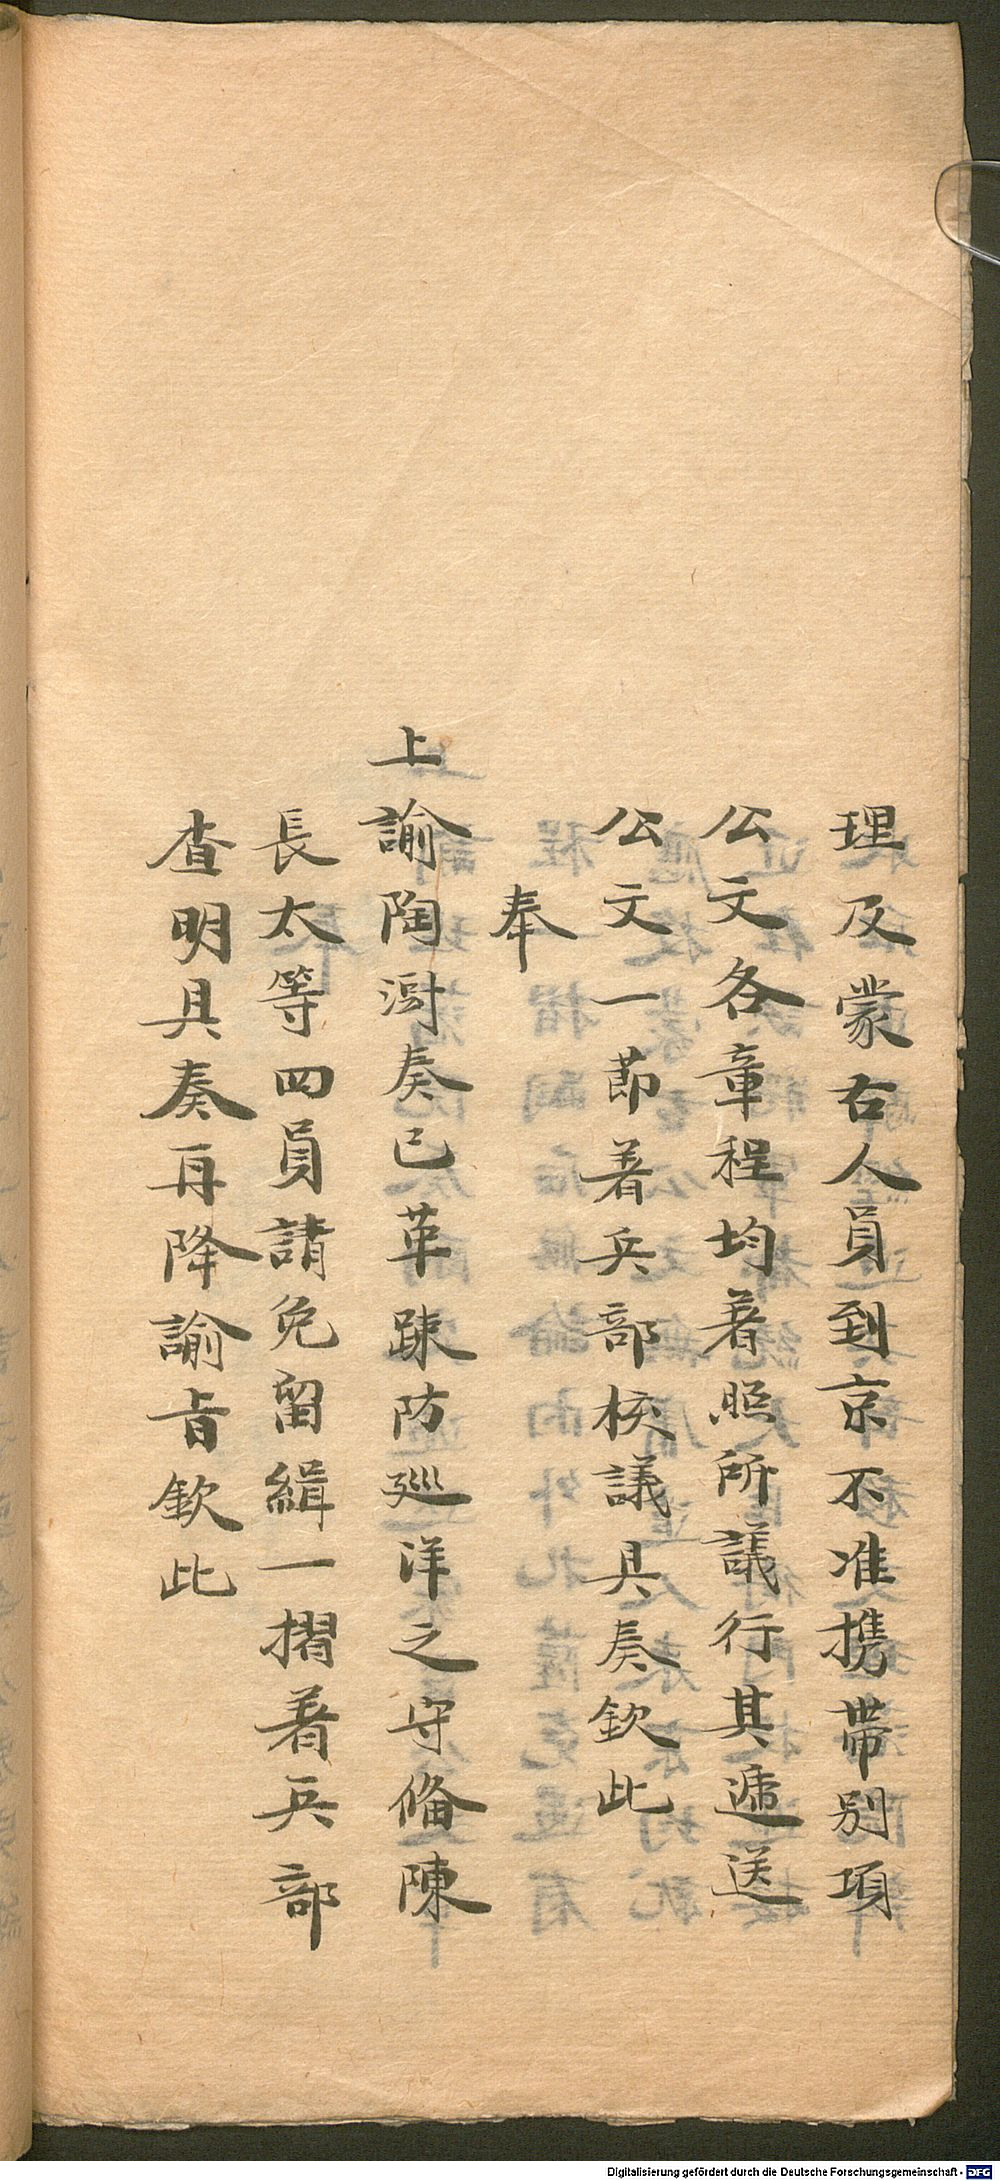 理及蒙古人員到京不准携帶別項
公文各章程均著照所議行其遞送
公文一節着兵部核議具奏欽此
奉
上諭陶澍奏已革疎防廵洋之守俻陳
長太等四員請免留緝一摺着兵部
查明具奏再降諭旨欽此
Digitalisierung gefördert durch die Deutsche Forschungsgemeinschaft - DFG